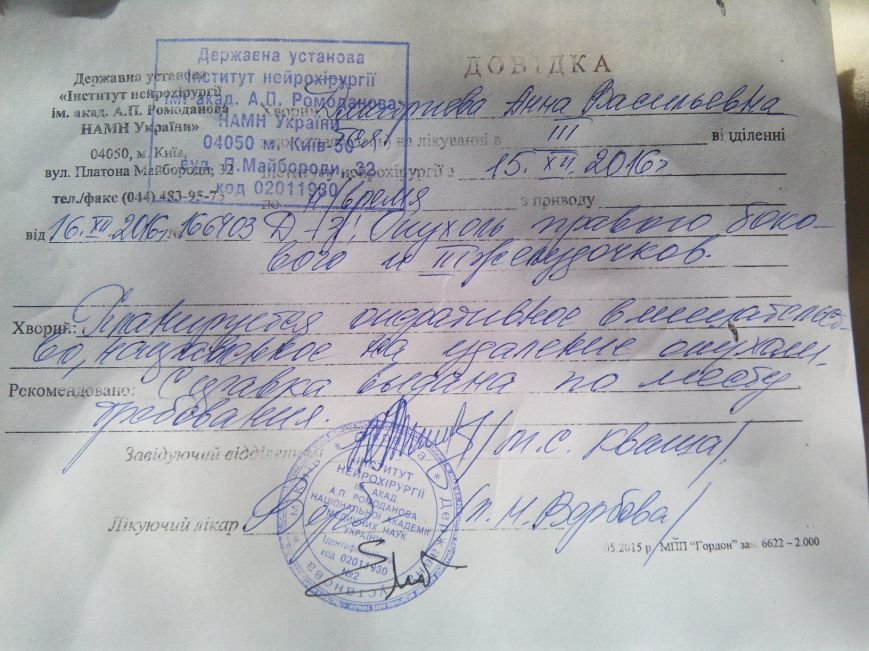 Державна установа
Інститут нейрохірургії
ім. акад. А.П. Ромоданова
НАМН України
04050 м. Київ-50
вул. П.Майбороди, 32
код 02011930
Державна установа
«Інститут нейрохірургії
ім. акад. А.П. Ромоданова
НАМН України»
04050, м. Київ,
вул. Платона Майбороди, 32
тел./факс (044) 483-95-73
від 16. XII. 2016г. № 166403
ДОВІДКА
Анна Васильевна
на лікуванні в III відділенні
нейрохірургії з 15. XII. 2016г
по н/время з приводу
Д-з: Опухоль правого боко-
вого и III желудочков.
Хворий: Планируется оперативное вмешательст-
во, на удаление опухоли.
Рекомендовано: Справка выдана по месту
требования.
Завідуючий відділенням /М.С. Кваша/
Лікуючий лікар Н. Вербова/
ІНСТИТУТ
НЕЙРОХІРУРГІЇ
ІМ. АКАД.
А.П. РОМОДАНОВА
НАЦІОНАЛЬНОЇ АКАДЕМІЇ
МЕДИЧНИХ НАУК
УКРАЇНИ
код 02011930
№2
05.2015 р. МПП “Гордон” зам. 6622 – 2.000